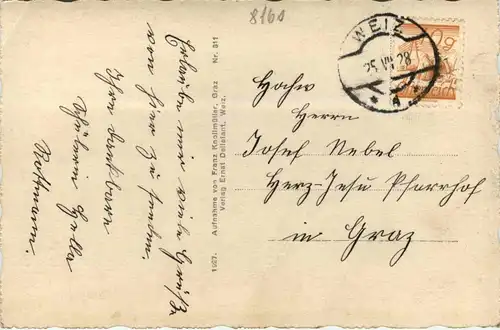 8160
WEIZ
25.VII.28
Hochw.
Herrn
Josef Nebel
Herz-Jesu Pfarrhof
in Graz
1927. Aufnahme von Franz Knollmüller, Graz Nr. 811
Verlag Ernst Dellefant, Weiz.
Erlaube mir viele Grüße
von hier zu senden.
Ihre dankbare
Schülerin Hella